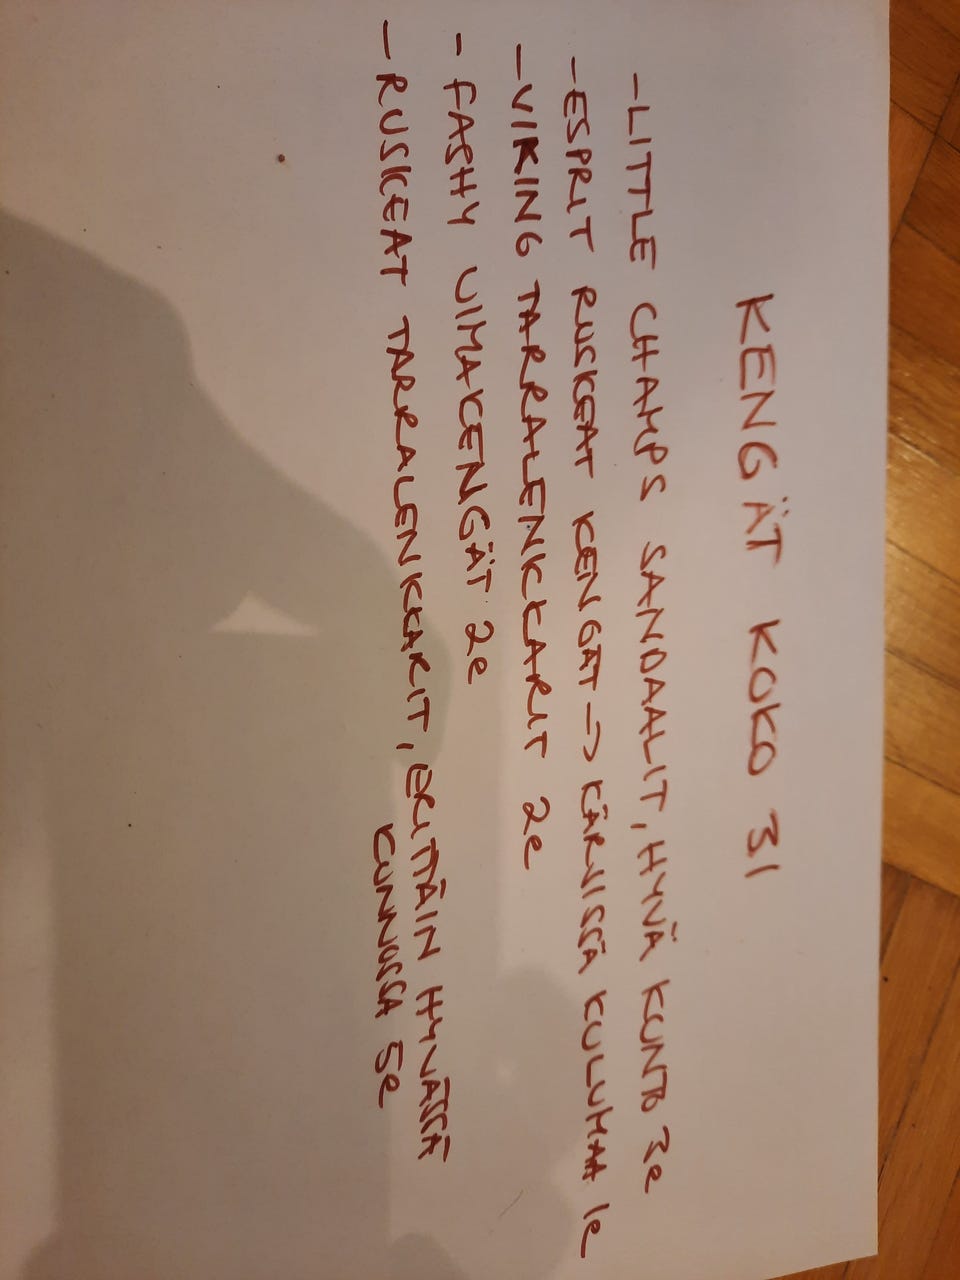 KENGÄT KOKO 31
-LITTLE CHAMPS SANDAALIT, HYVÄ KUNTO 3e
-ESPRIT RUSKEAT KENGÄT -> KÄRJISSÄ KULUMAA 1e
-VIKING TARRALENKKARIT 2e
- FASHY UIMAKENGÄT 2e
-RUSKEAT TARRALENKKARIT, ERITTÄIN HYVÄSSÄ
KUNNOSSA 5e